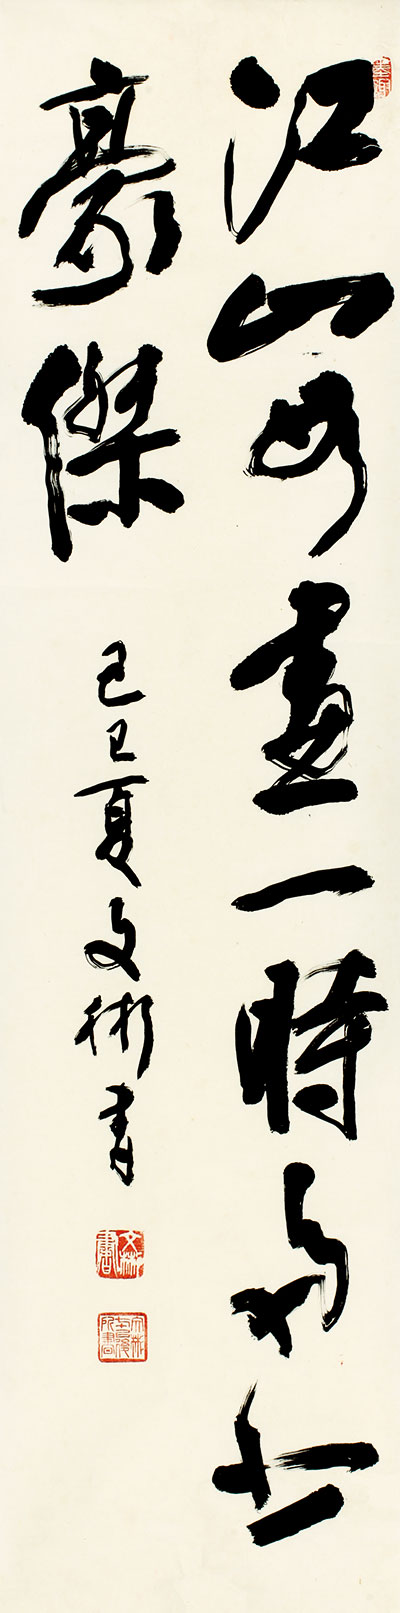 江山如畫一時多少
豪傑
己巳夏文彬書